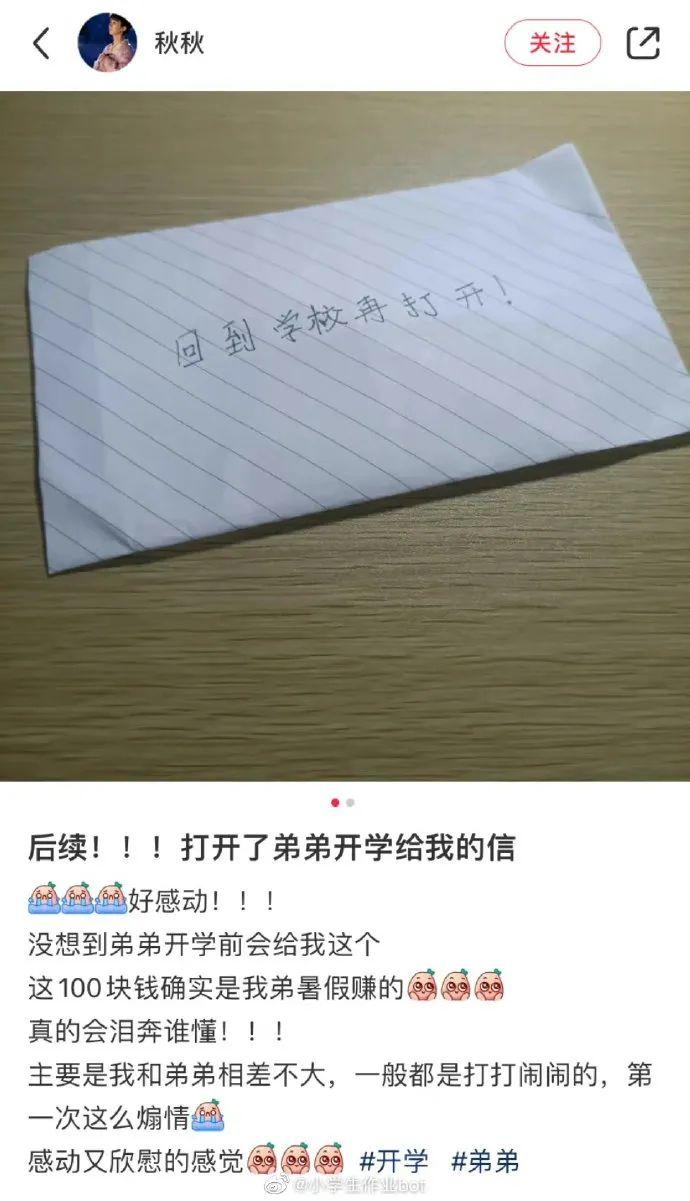 秋秋
关注
回到学校再打开!
后续!!!打开了弟弟开学给我的信
好感动!!!
没想到弟弟开学前会给我这个
这100块钱确实是我弟暑假赚的
真的会泪奔谁懂!!!
主要是我和弟弟相差不大,一般都是打打闹闹的,第
一次这么煽情
感动又欣慰的感觉 #开学 #弟弟
@小学生作业bot